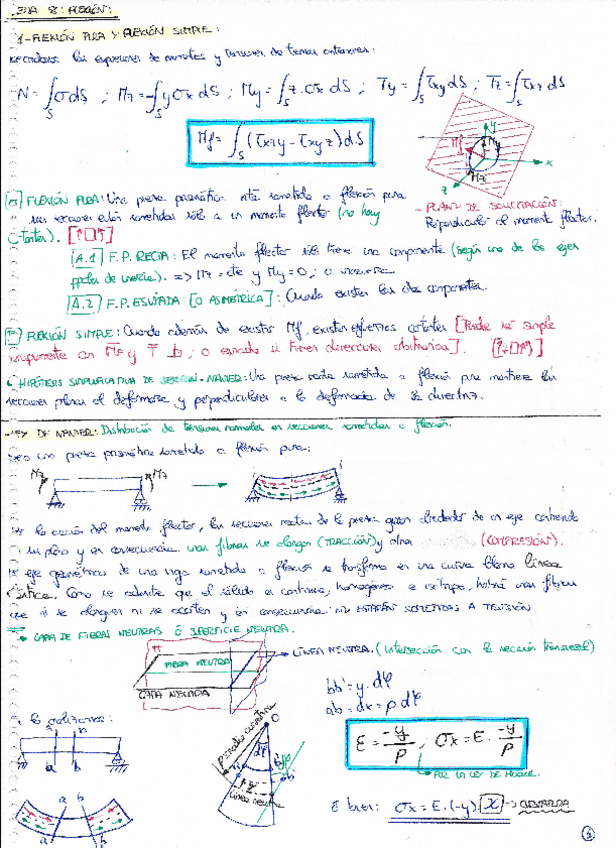 TEMA 8: FLEXIÓN:
1-FLEXIÓN PURA Y FLEXIÓN SIMPLE:
las expresiones de momentos y tensiones de temas anteriores:
N = ∫S σ dS ; Mz = -∫S y σx dS ; My = ∫S z · σx dS ; Ty = ∫S τxy dS ; Tz = ∫S τxz dS
Mf = ∫S (τxz y - τxy z) dS
y
Mf
x
z
FLEXIÓN PURA: Una pieza prismática está sometida a flexión pura
sus secciones están sometidas sólo a un momento flector (no hay
Cortantes).
- PLANO DE SOLICITACIÓN:
Perpendicular al momento flector.
A.1 F.P. RECTA: El momento flector sólo tiene una componente (según uno de los ejes
ppales de inercia). => Mz = cte y My = 0, o viceversa
A.2 F.P. ESVIADA: [O ASIMÉTRICA]: Cuando existen las dos componentes.
FLEXIÓN SIMPLE: Cuando además de existir Mf, existen esfuerzos cortantes [Puede ser simple
componente en Mf y T, o esviada si tienen direcciones arbitrarias].
HIPÓTESIS SIMPLIFICATIVA DE NAVIER: Una pieza recta sometida a flexión pura mantiene las
secciones planas al deformarse y perpendiculares a la deformada de la directriz.
LEY DE NAVIER: Distribución de tensiones normales en secciones sometidas a flexión.
una pieza prismática sometida a flexión pura:
Mz
Mz
la acción del momento flector, las secciones rectas de la pieza giran alrededor de un eje contenido
su plano y en consecuencia unas fibras se alargan (TRACCIÓN) y otras (COMPRESIÓN).
eje geométrico de una viga sometida a flexión se transforma en una curva llamada línea
elástica. Como se admite que el sólido es continuo, homogéneo e isótropo, habrá unas fibras
que ni se alarguen ni se acorten y en consecuencia NO ESTARÁN SOMETIDAS A TENSIÓN.
CAPA DE FIBRAS NEUTRAS Ó SUPERFICIE NEUTRA.
FIBRA NEUTRA
LÍNEA NEUTRA. (Intersección con la sección transversal)
CAPA NEUTRA
bb' = y · dφ
ab = dx = ρ dφ
a b
a b
O
dφ
Línea neutra
ε = -y/ρ ; σx = E · -y/ρ
POR LA LEY DE HOOKE.
O bien: σx = E · (-y) · χ → CURVATURA